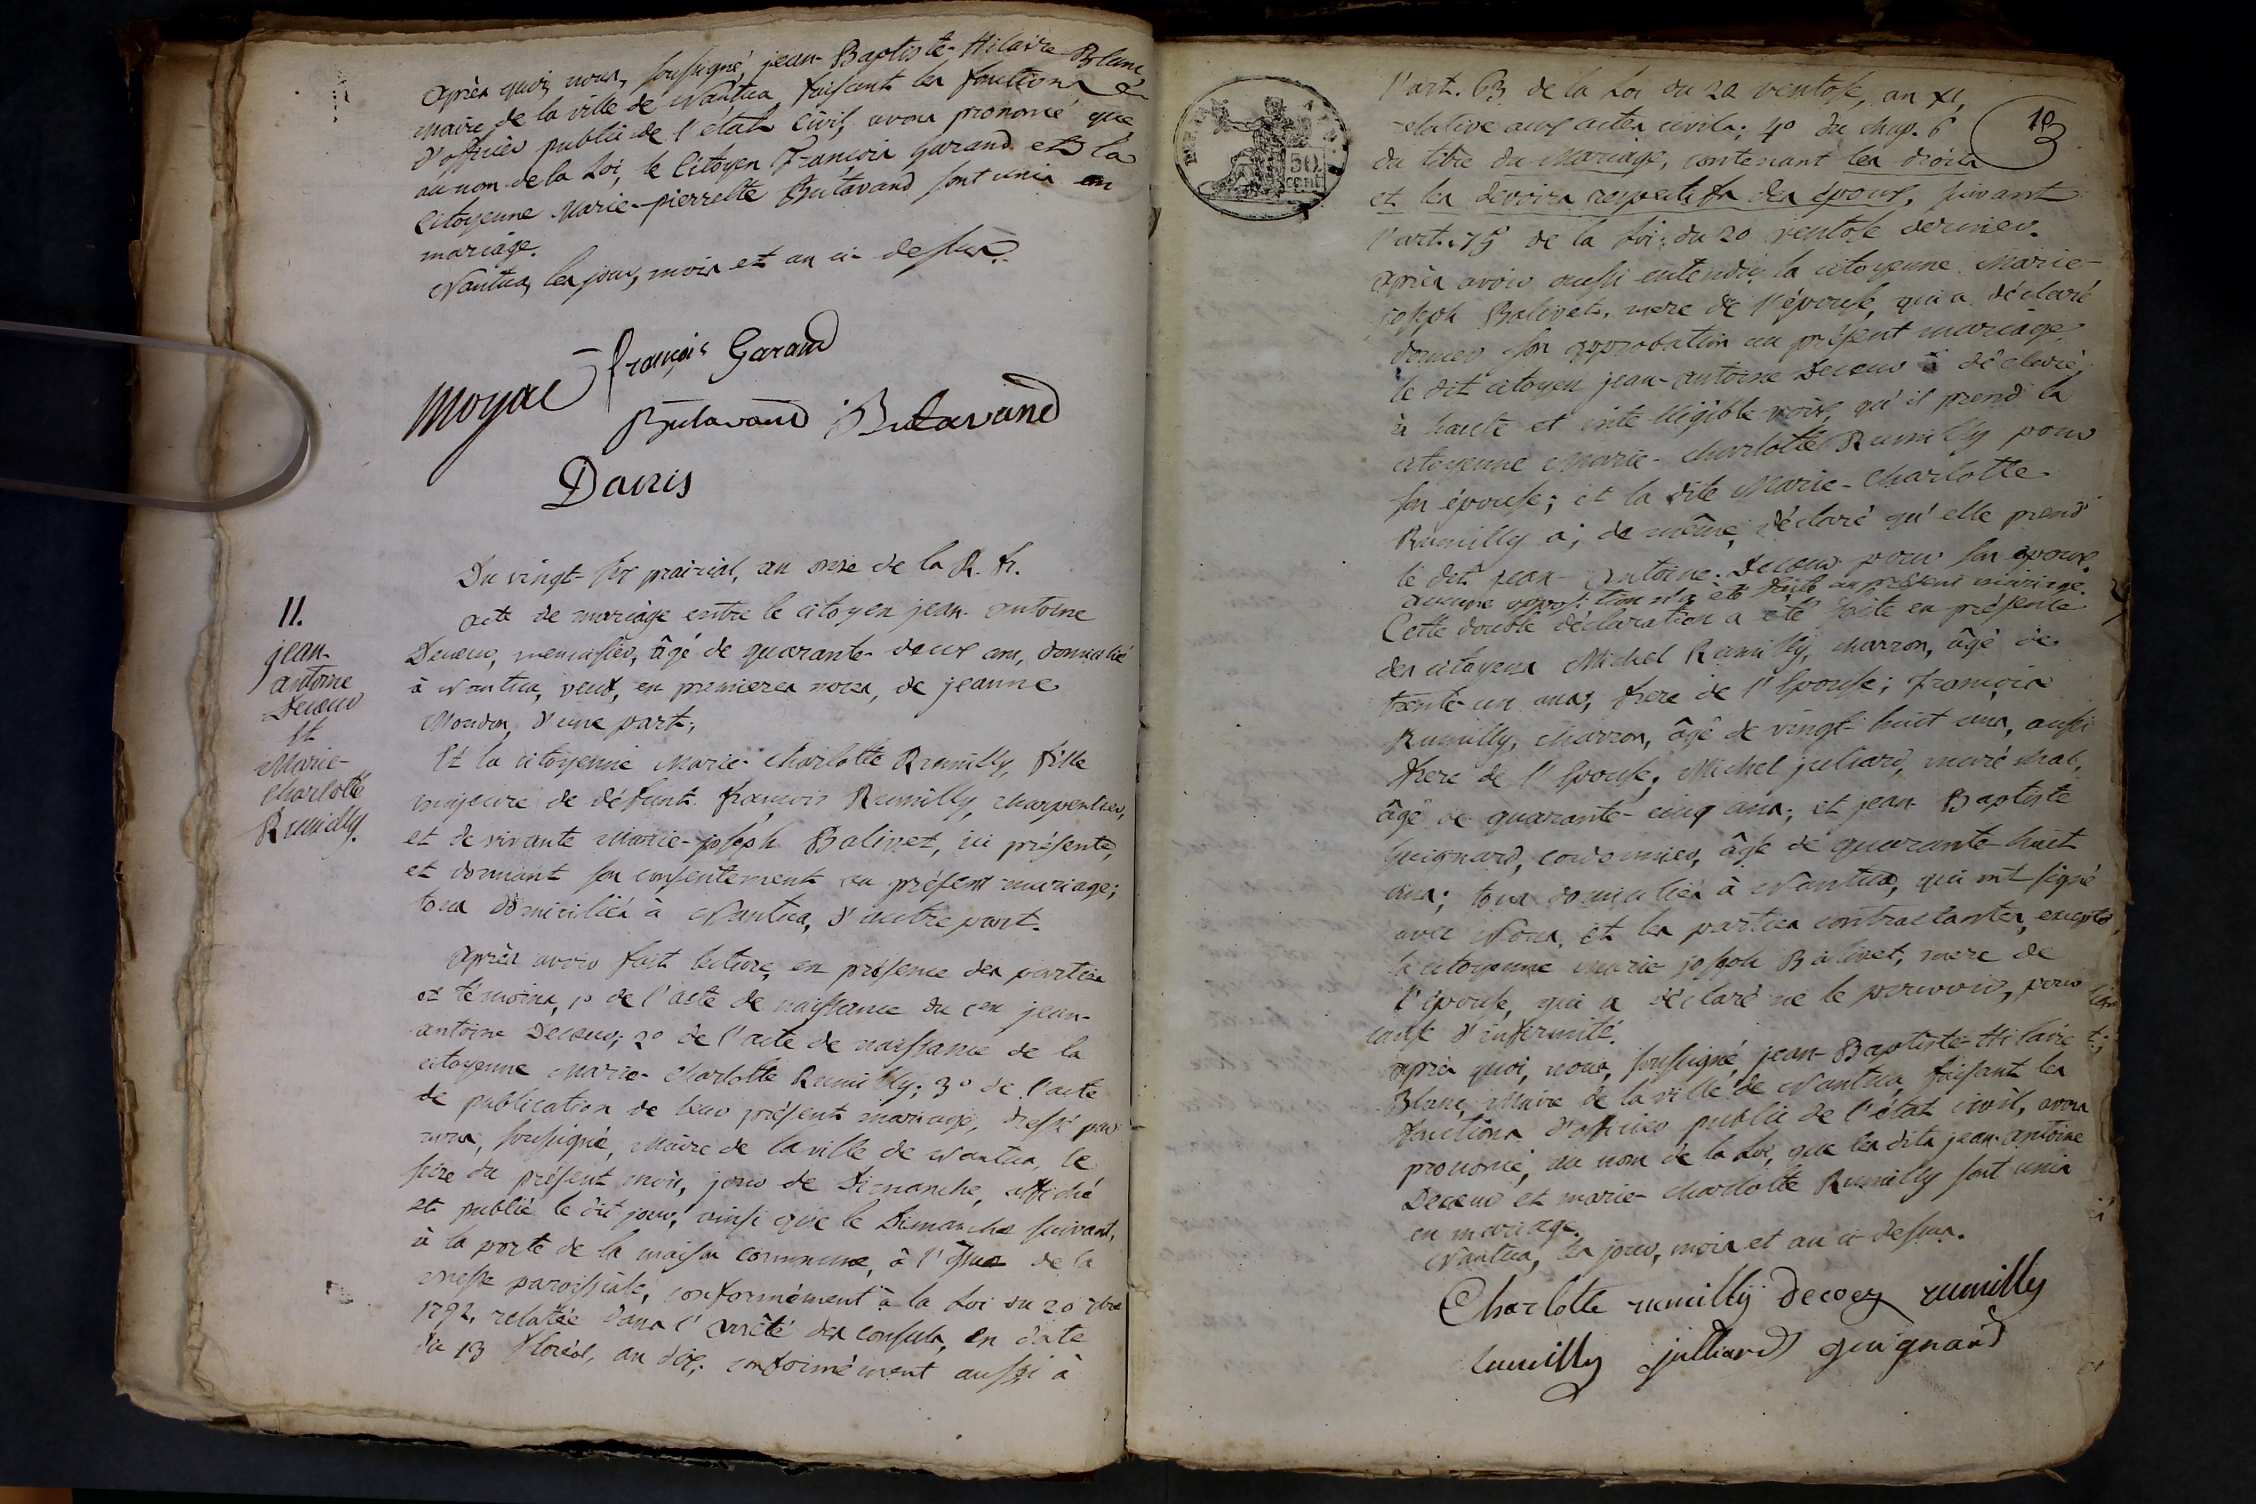 après quoi, nous, soussigné, jean-Baptiste-Hilaire Blanc,
maire de la ville de Nantua faisant les fonctions
d'officier public de l'état civil, avons prononcé que
au nom de la Loi, le Citoyen François Garand et la
Citoyenne Marie-pierrette Butavand sont unis en
mariage.
Nantua, les jour, mois et an ci-dessus.
François Garand
Moyae
Butavand Butavand
Danis
Du vingt-six prairial, an onze de la R. fr.
11.
jean-
antoine
Decoeur
et
Marie-
Charlotte
Rumilly.
acte de mariage entre le citoyen jean-antoine
Decoeur, menuisier, âgé de quarante-deux ans, domicilié
à Nantua, veuf, en premieres noces, de jeanne
Moudon, d'une part;
Et la citoyenne Marie-Charlotte Rumilly, fille
majeure de défunt françois Rumilly, charpentier,
et de vivante Marie-joseph Balivet, ici présente,
et donnant son consentement au présent mariage;
tous domiciliés à Nantua, d'autre part.
après avoir fait lecture, en présence des parties
et témoins, 1° de l'acte de naissance du cen jean-
antoine Decoeur; 2° de l'acte de naissance de la
citoyenne Marie-Charlotte Rumilly; 3° de l'acte
de publication de leur présent mariage, dressé par
nous, soussigné, Maire de la ville de Nantua, le
seize du présent mois, jour de Dimanche, affiché
et publié le dit jour, ainsi que le Dimanche suivant,
à la porte de la maison commune, à l'issue de la
messe paroissiale, conformément à la Loi du 20 7bre
1792, relatée dans l'arrêté des consuls, en date
du 13 floréal, an dix; conformément aussi à
50
cent
13
l'art. 63 de la Loi du 20 ventose, an XI,
relative aux actes civils; 4° du chap. 6
du titre du Mariage, contenant les droits
et les devoirs respectifs des époux, suivant
l'art. 75 de la Loi du 20 ventose dernier.
après avoir aussi entendu la citoyenne Marie-
joseph Balivet, mere de l'épouse, qui a déclaré
donner son approbation au présent mariage,
le dit citoyen jean-antoine Decoeur a déclaré,
à haute et intelligible voix, qu'il prend la
citoyenne Marie-Charlotte Rumilly pour
son épouse; et la dite Marie-Charlotte
Rumilly a, de même, déclaré qu'elle prend
le dit jean-antoine Decoeur pour son époux.
aucune opposition n'a été faite au présent mariage.
Cette double déclaration a été faite en présence
des citoyens Michel Rumilly, charron, âgé de
trente-un ans, frere de l'Epouse; François
Rumilly, charron, âgé de vingt-huit ans, aussi
frere de l'Epouse; Michel juliard, maréchal,
âgé de quarante-cinq ans; et jean-Baptiste
Guignard, cordonnier, âgé de quarante-huit
ans; tous domiciliés à Nantua, qui ont signé
avec Nous et les parties contractantes, excepté
la citoyenne marie joseph Balivet, mere de
l'épouse, qui a déclaré ne le pouvoir, pour
cause d'infirmité.
après quoi, nous, soussigné, jean-Baptiste-Hilaire
Blanc, Maire de la ville de Nantua, faisant les
fonctions d'officier public de l'état civil, avons
prononcé, au nom de la Loi, que les dits jean-antoine
Decoeur et marie-Charlotte Rumilly sont unis
en mariage.
Nantua, les jour, mois et an ci-dessus.
Charlotte rumilly decoeur rumilly
rumilly julliard guignard